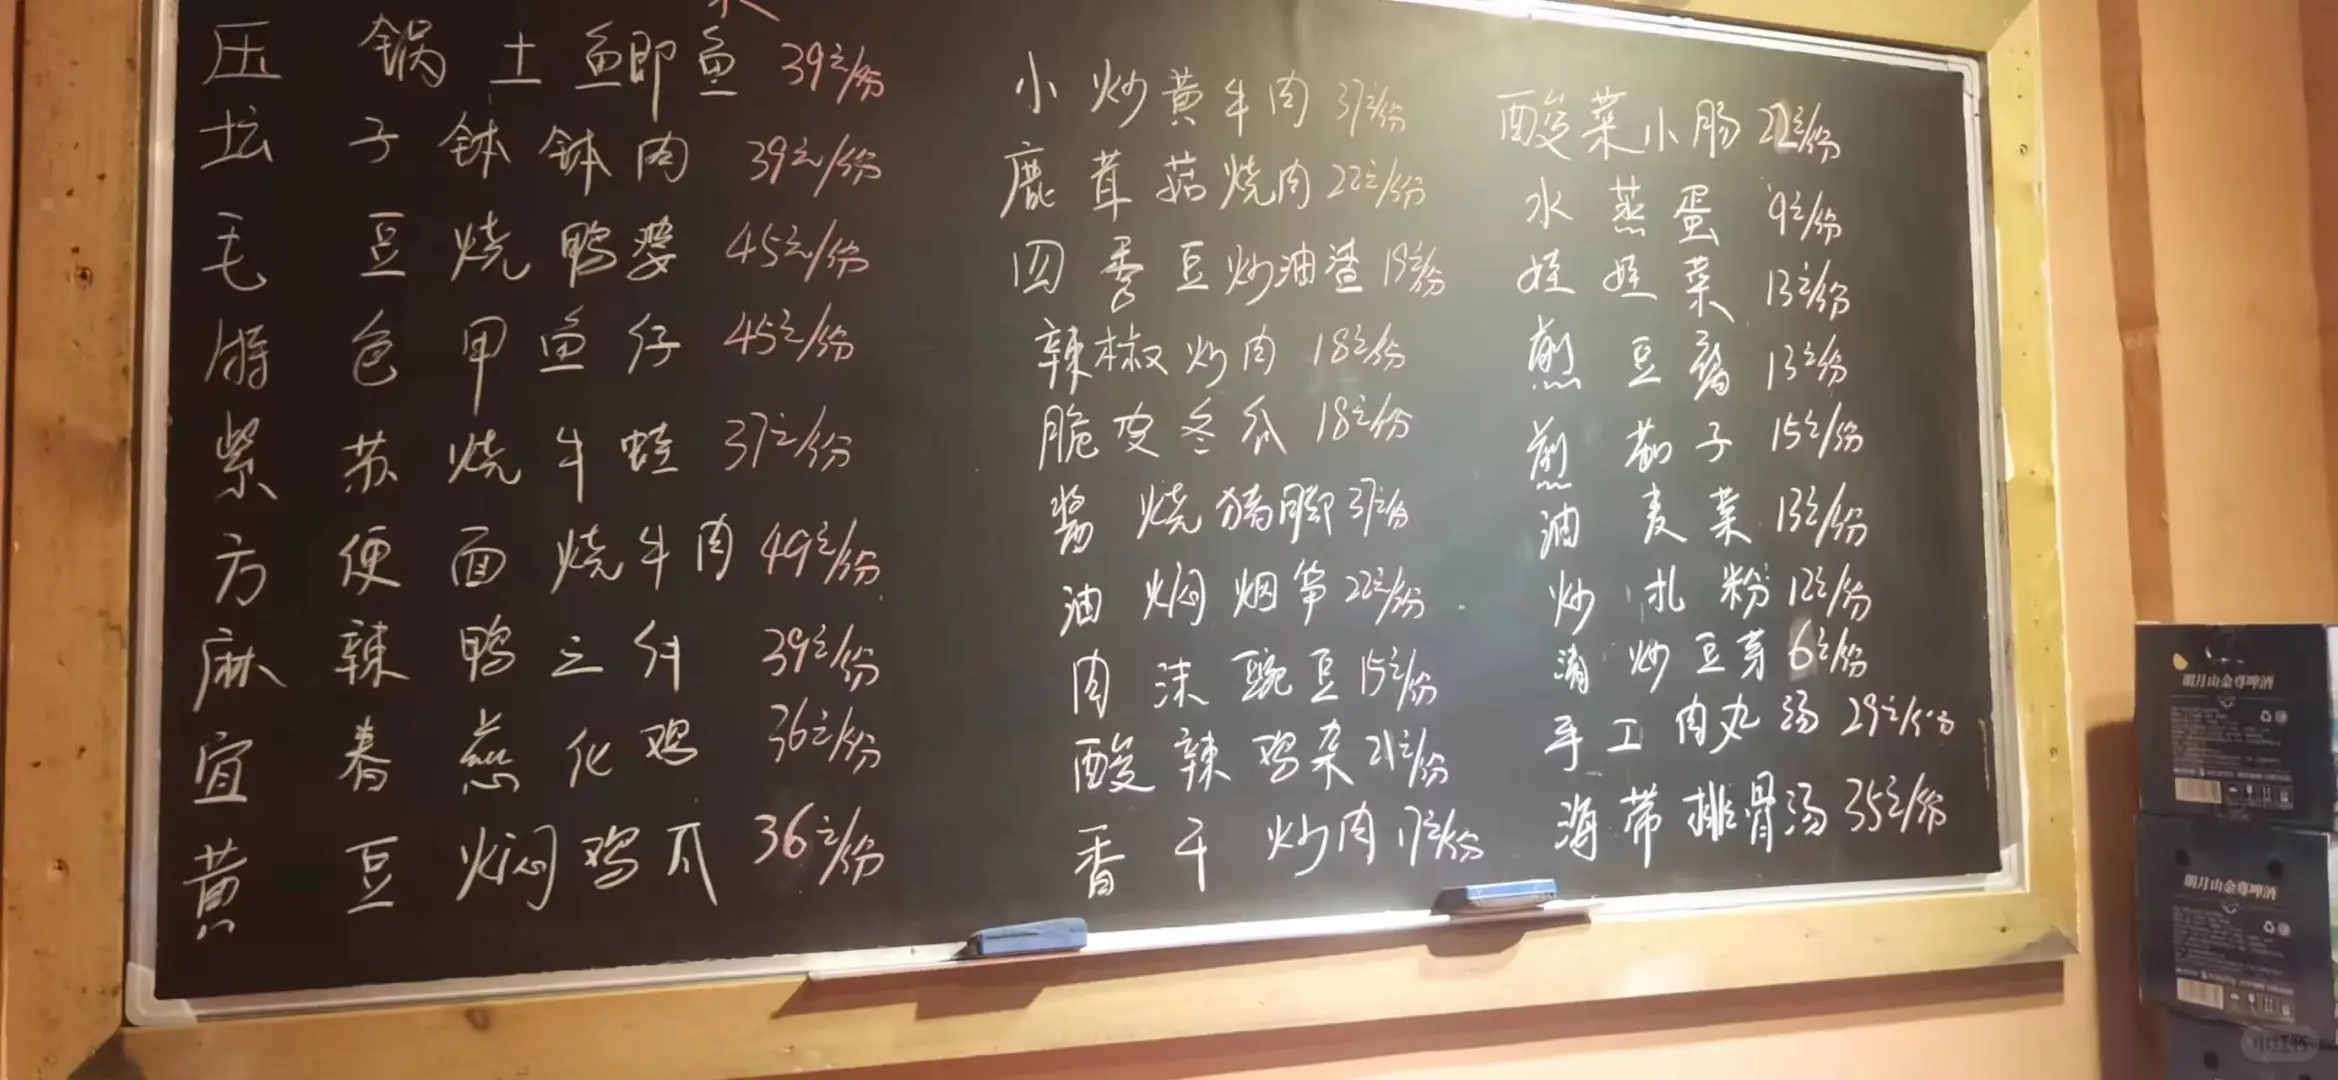 压锅土鲫鱼 39元/份
坛子钵钵肉 39元/份
毛豆烧鸭婆 45元/份
特色甲鱼仔 45元/份
紫苏烧牛蛙 37元/份
方便面烧牛肉 49元/份
麻辣鸭三件 39元/份
宜春燕化鸡 36元/份
黄豆焖鸡爪 36元/份
小炒黄牛肉 37元/份
鹿茸菇烧肉 22元/份
四季豆炒油渣 19元/份
辣椒炒肉 18元/份
脆皮冬瓜 18元/份
酱烧猪脚 37元/份
油焖烟笋 22元/份
肉沫豌豆 15元/份
酸辣鸡杂 21元/份
香干炒肉 17元/份
酸菜小肠 22元/份
水蒸蛋 9元/份
娃娃菜 13元/份
煎豆腐 13元/份
煎茄子 15元/份
油麦菜 13元/份
炒扎粉 12元/份
清炒豆芽 6元/份
手工肉丸汤 29元/份
海带排骨汤 35元/份
明月山金尊啤酒
明月山金尊啤酒